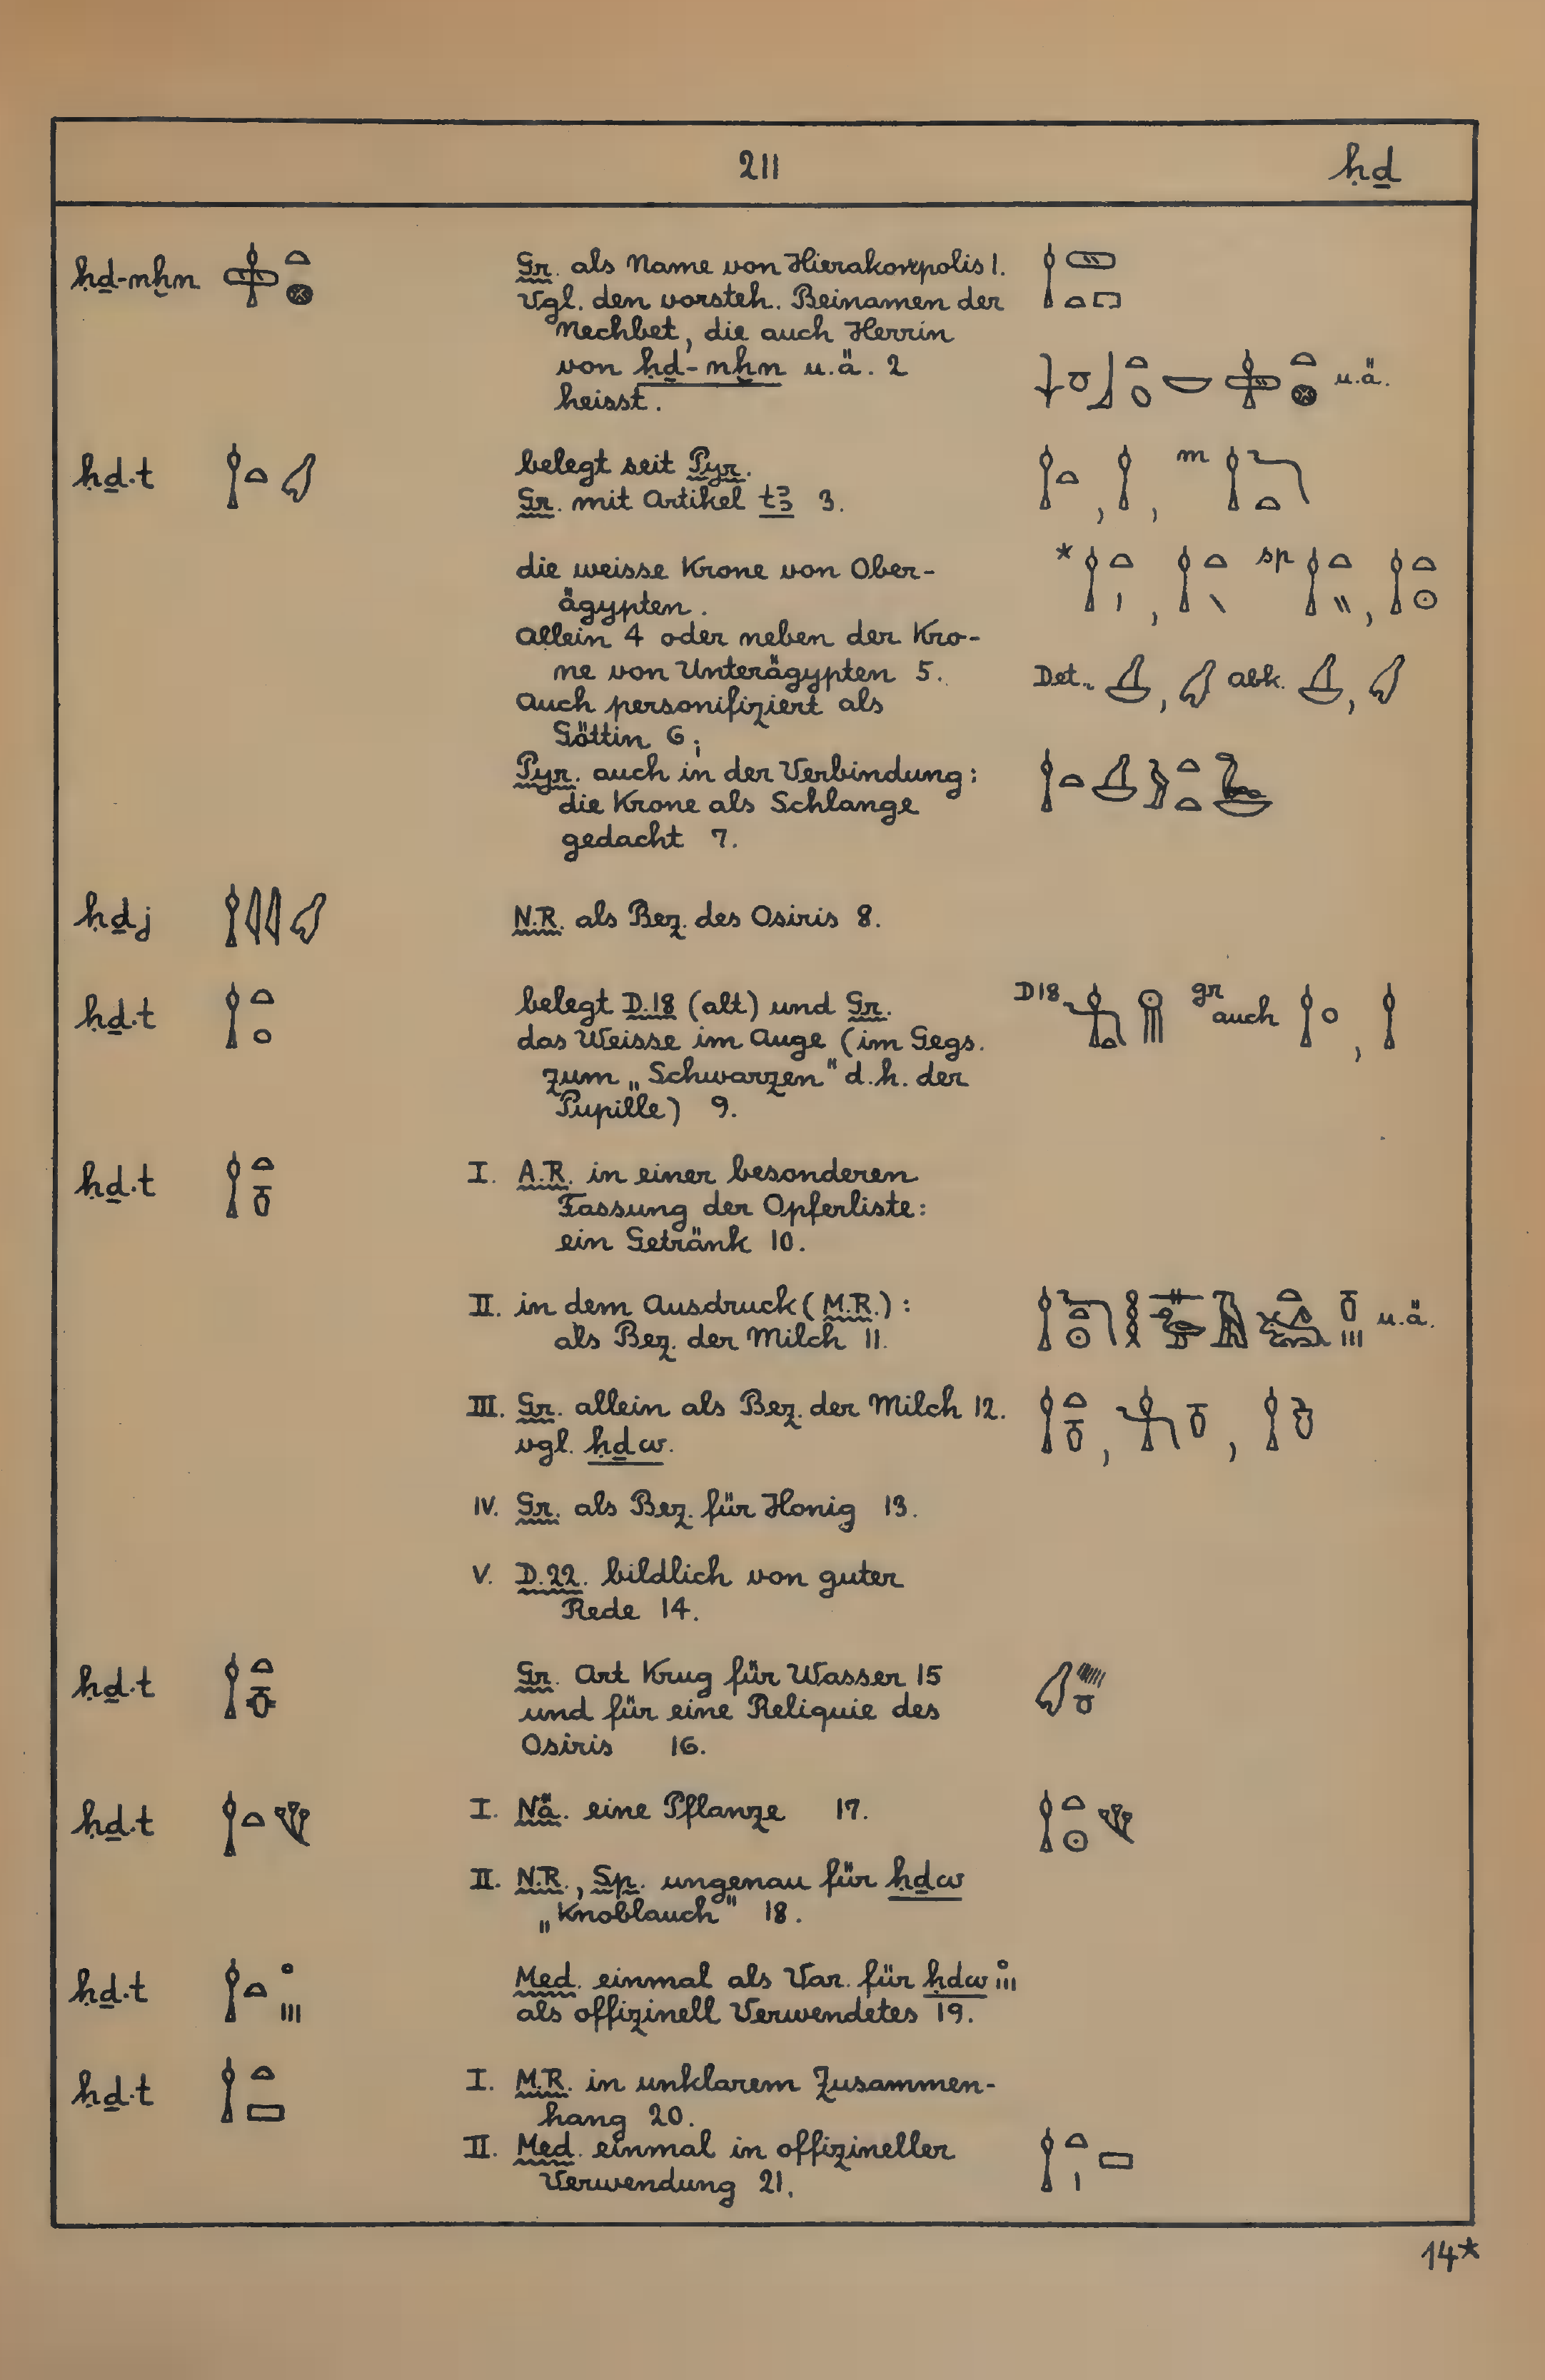 211 ḥḏ
ḥḏ-nḫn Gr. als Name von Hierakonpolis 1.
Vgl. den vorsteh. Beinamen der
Nechbet, die auch Herrin
von ḥḏ-nḫn u.ä. 2 u.ä.
heisst.
ḥḏ.t belegt seit Pyr. m
Gr. mit Artikel tꜣ 3.
die weisse Krone von Ober- * sp
ägypten.
Allein 4 oder neben der Kro-
ne von Unterägypten 5. Det. abk.
Auch personifiziert als
Göttin 6;
Pyr. auch in der Verbindung:
die Krone als Schlange
gedacht 7.
ḥḏj N.R. als Bez. des Osiris 8.
ḥḏ.t belegt D.18 (alt) und Gr. D18 gr auch
das Weisse im Auge (im Gegs.
zum „Schwarzen" d.h. der
Pupille) 9.
ḥḏ.t I. A.R. in einer besonderen
Fassung der Opferliste:
ein Getränk 10.
II. in dem Ausdruck (M.R.): u.ä.
als Bez. der Milch 11.
III. Gr. allein als Bez. der Milch 12.
vgl. ḥḏw.
IV. Gr. als Bez. für Honig 13.
V. D.22. bildlich von guter
Rede 14.
ḥḏ.t Gr. Art Krug für Wasser 15
und für eine Reliquie des
Osiris 16.
ḥḏ.t I. Nä. eine Pflanze 17.
II. N.R., Sp. ungenau für ḥḏw
„Knoblauch" 18.
ḥḏ.t Med. einmal als Var. für ḥḏw
als offizinell Verwendetes 19.
ḥḏ.t I. M.R. in unklarem Zusammen-
hang 20.
II. Med. einmal in offizineller
Verwendung 21.
14*